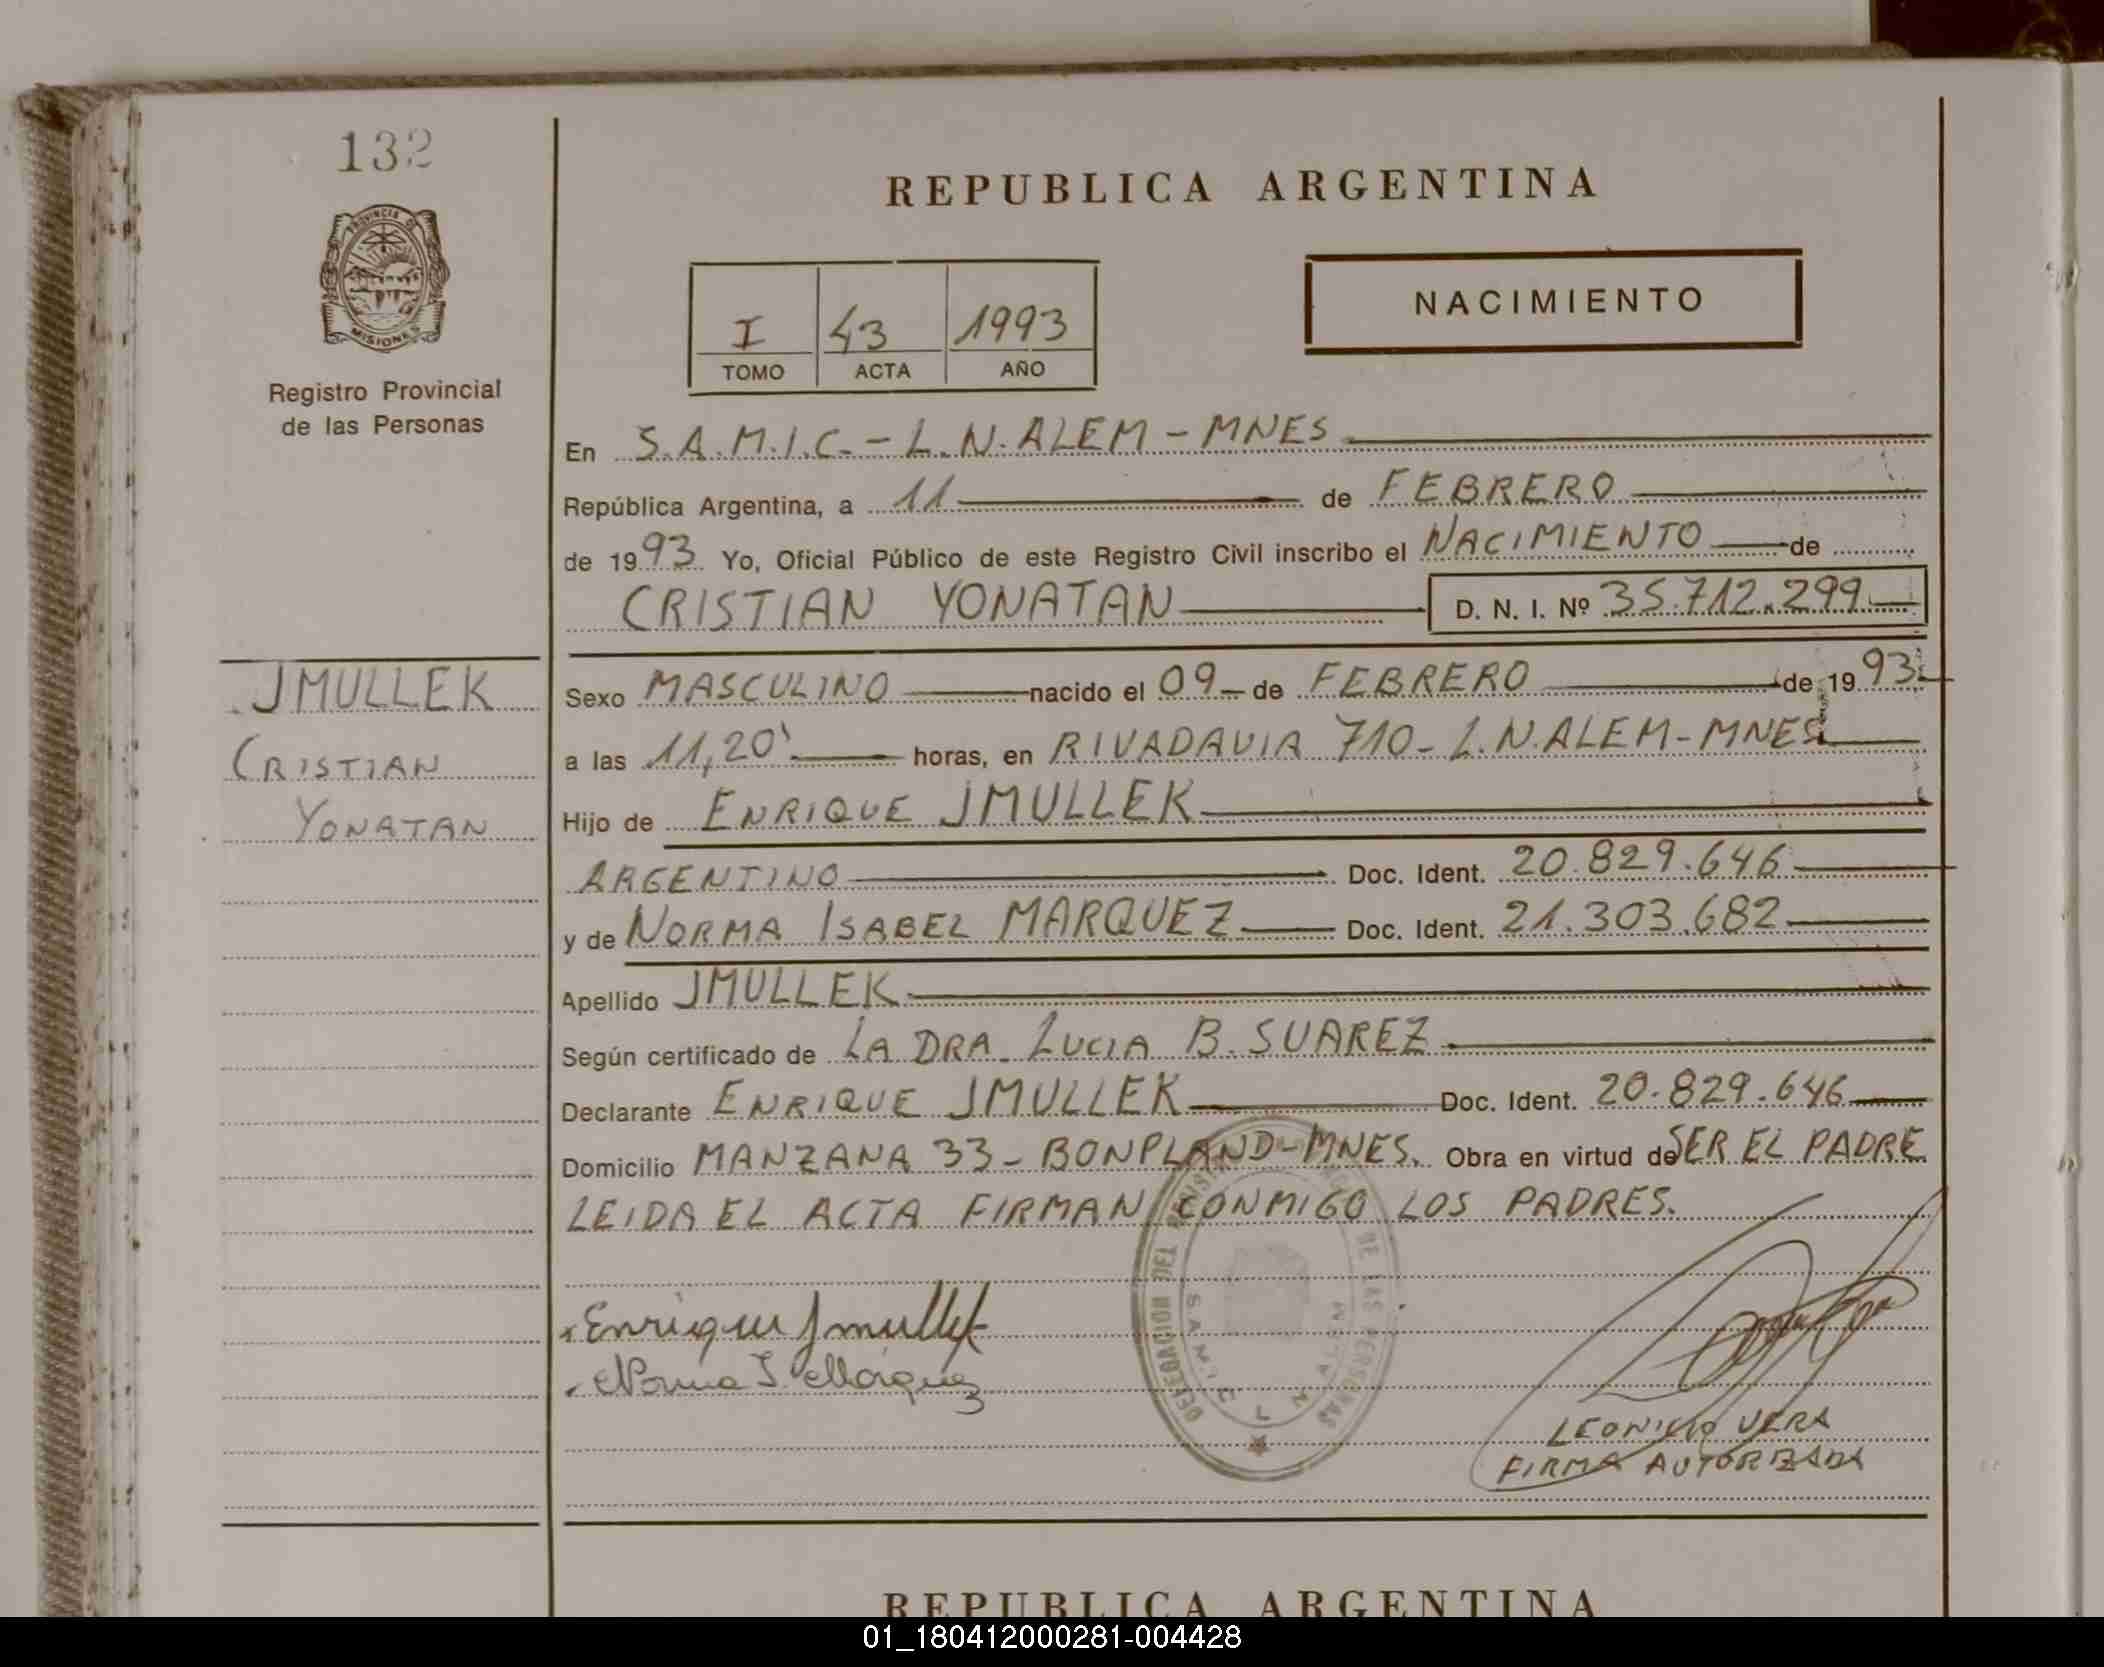 132
REPUBLICA ARGENTINA
PROVINCIA DE
MISIONES
NACIMIENTO
I 43 1993
TOMO ACTA AÑO
Registro Provincial
de las Personas
En S.A.M.I.C. - L.N. ALEM - MNES
República Argentina, a 11 de FEBRERO
de 1993 Yo, Oficial Público de este Registro Civil inscribo el NACIMIENTO de
CRISTIAN YONATAN D. N. I. Nº 35.712.299
JMULLEK
CRISTIAN
YONATAN
Sexo MASCULINO nacido el 09 de FEBRERO de 1993
a las 11,20' horas, en RIVADAVIA 710 - L.N. ALEM - MNES
Hijo de ENRIQUE JMULLEK
ARGENTINO Doc. Ident. 20.829.646
y de NORMA ISABEL MARQUEZ Doc. Ident. 21.303.682
Apellido JMULLEK
Según certificado de LA DRA. LUCIA B. SUAREZ
Declarante ENRIQUE JMULLEK Doc. Ident. 20.829.646
Domicilio MANZANA 33 - BONPLAND - MNES. Obra en virtud de SER EL PADRE
LEIDA EL ACTA FIRMAN CONMIGO LOS PADRES.
Enrique Jmullek
Norma I. Márquez
DELEGACION DEL DE LAS PERSONAS
S.A.M.I.C. L N ALEM
VERA
FIRMA AUTORIZADA
REPUBLICA ARGENTINA
01_180412000281-004428